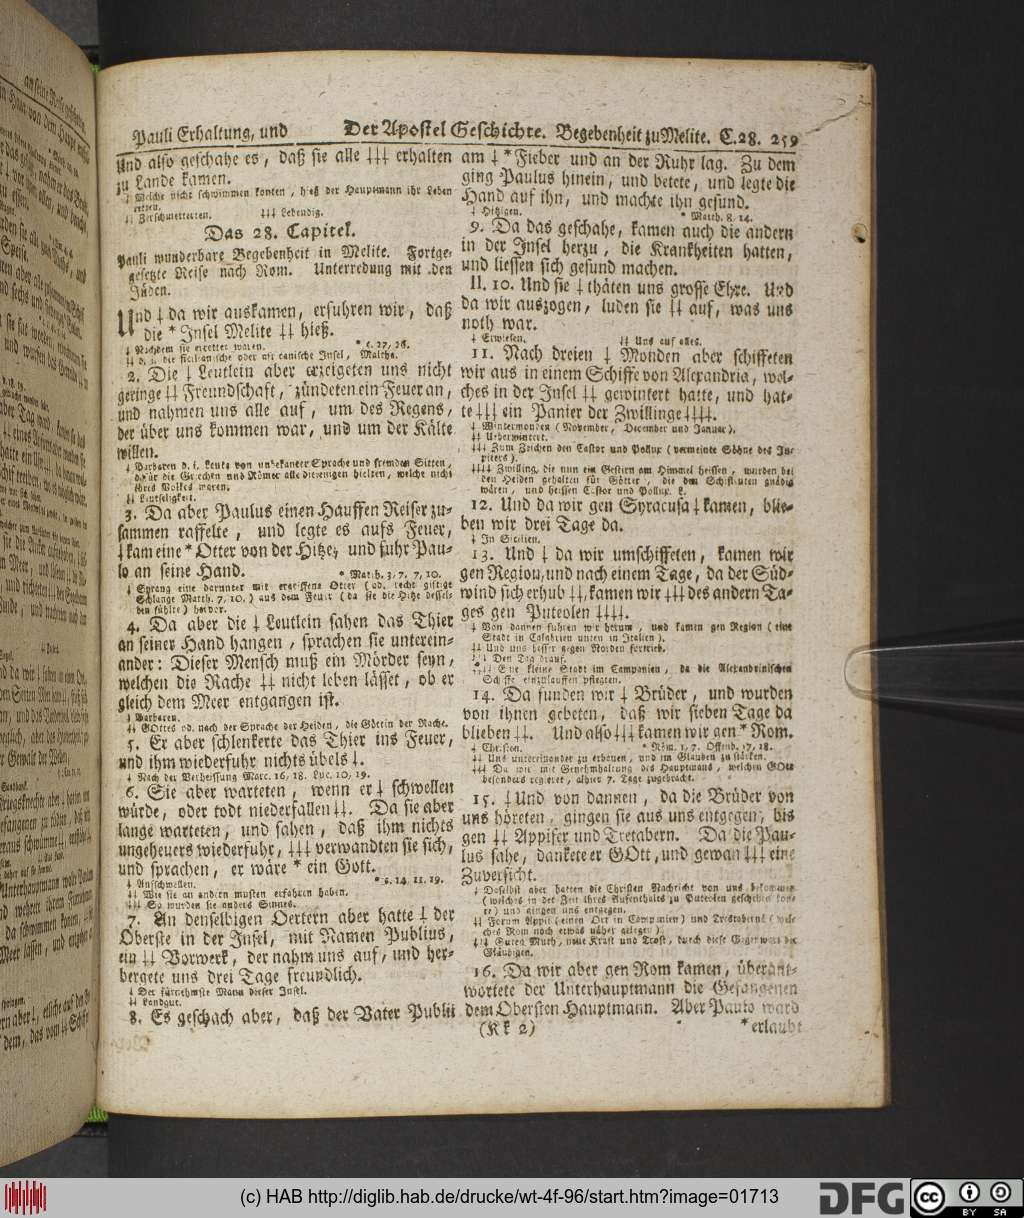 Pauli Erhaltung, und Der Apostel Geschichte. Begebenheit zu Melite. C. 28. 259
Und also geschahe es, daß sie alle ‡‡‡ erhalten
zu Lande kamen.
† Welche nicht schwimmen konten, hieß der Hauptmann ihr Leben
retten.
‡‡ Zerschmetterten. ‡‡‡ Lebendig.
Das 28. Capitel.
Pauli wunderbare Begebenheit in Melite. Fortge-
gesetzte Reise nach Rom. Unterredung mit den
Jüden.
Und ‡ da wir auskamen, erfuhren wir, daß
die * Insel Melite ‡‡ hieß.
‡ Nachdem sie errettet waren. * c. 27, 26.
‡‡ d. i. die sicilianische oder africanische Insel, Maltha.
2. Die ‡ Leutlein aber erzeigeten uns nicht
geringe ‡‡ Freundschaft, zündeten ein Feuer an,
und nahmen uns alle auf, um des Regens,
der über uns kommen war, und um der Kälte
willen.
‡ Barbaren d. i. Leute von unbekanter Sprache und fremden Sitten,
dafür die Griechen und Römer alle diejenigen hielten, welche nicht
ihres Volkes waren.
‡‡ Leutseligkeit.
3. Da aber Paulus einen Hauffen Reiser zu-
sammen raffelte, und legte es aufs Feuer,
‡ kam eine * Otter von der Hitze, und fuhr Pau-
lo an seine Hand. * Matth. 3, 7. 7, 10.
‡ Sprang eine darunter mit ergriffene Otter (od. recht giftige
Schlange Matth. 7, 10.) aus dem Feuer (da sie die Hitze dessel-
den fühlte) hervor.
4. Da aber die ‡ Leutlein sahen das Thier
an seiner Hand hangen, sprachen sie unterein-
ander: Dieser Mensch muß ein Mörder seyn,
welchen die Rache ‡‡ nicht leben lässet, ob er
gleich dem Meer entgangen ist.
‡ Barbaren.
‡‡ GOttes od. nach der Sprache der Heiden, die Göttin der Rache.
5. Er aber schlenkerte das Thier ins Feuer,
und ihm wiederfuhr nichts übels ‡.
‡ Nach der Verheissung Marc. 16, 18. Luc. 10, 19.
6. Sie aber warteten, wenn er ‡ schwellen
würde, oder todt niederfallen ‡‡. Da sie aber
lange warteten, und sahen, daß ihm nichts
ungeheuers wiederfuhr, ‡‡‡ verwandten sie sich,
und sprachen, er wäre * ein Gott.
‡ Anschwellen. * c. 14, 11. 19.
‡‡ Wie sie an andern musten erfahren haben.
‡‡‡ So wurden sie anders Sinnes.
7. An denselbigen Oertern aber hatte ‡ der
Oberste in der Insel, mit Namen Publius,
ein ‡‡ Vorwerk, der nahm uns auf, und her-
bergete uns drei Tage freundlich.
‡ Der fürnehmste Mann dieser Insel.
‡‡ Landgut.
8. Es geschach aber, daß der Vater Publii
am ‡ * Fieber und an der Ruhr lag. Zu dem
ging Paulus hinein, und betete, und legte die
Hand auf ihn, und machte ihn gesund.
‡ Hitzigen. * Matth. 8, 14.
9. Da das geschahe, kamen auch die andern
in der Insel herzu, die Krankheiten hatten,
und liessen sich gesund machen.
II. 10. Und sie ‡ thäten uns grosse Ehre. Und
da wir auszogen, luden sie ‡‡ auf, was uns
noth war.
‡ Erwiesen. ‡‡ Uns auf alles.
11. Nach dreien ‡ Monden aber schiffeten
wir aus in einem Schiffe von Alexandria, wel-
ches in der Insel ‡‡ gewintert hatte, und hat-
te ‡‡‡ ein Panier der Zwillinge ‡‡‡‡.
‡ Wintermonden (November, December und Januar).
‡‡ Ueberwintert.
‡‡‡ Zum Zeichen den Castor und Pollux (vermeinte Söhne des Ju-
piters).
‡‡‡‡ Zwilling, die nun ein Gestirn am Himmel heissen, wurden bei
den Heiden gehalten für Götter, die den Schifleuten gnädig
wären, und heissen Castor und Pollux. L.
12. Und da wir gen Syracusa ‡ kamen, blie-
ben wir drei Tage da.
‡ In Sicilien.
13. Und ‡ da wir umschiffeten, kamen wir
gen Region, und nach einem Tage, da der Süd-
wind sich erhub ‡‡, kamen wir ‡‡‡ des andern Ta-
ges gen Puteolen ‡‡‡‡.
‡ Von dannen fuhren wir herum, und kamen gen Region (eine
Stadt in Calabrien unten in Italien).
‡‡ Und uns besser gegen Norden fortrieb.
‡‡‡ Den Tag drauf.
‡‡‡‡ Eine kleine Stadt im Campanien, da die Alexandrinischen
Schiffe einzulauffen pflegten.
14. Da funden wir ‡ Brüder, und wurden
von ihnen gebeten, daß wir sieben Tage da
blieben ‡‡. Und also ‡‡‡ kamen wir gen * Rom.
‡ Christen. * Röm. 1, 7. Offenb. 17, 18.
‡‡ Uns untereinander zu erbauen, und im Glauben zu stärken.
‡‡‡ Da wir mit Genehmhaltung des Hauptmans, welchen GOtt
besonders regieret, alhier 7. Tage zugebracht.
15. ‡ Und von dannen, da die Brüder von
uns höreten, gingen sie aus uns entgegen, bis
gen ‡‡ Appifer und Tretabern. Da die Pau-
lus sahe, dankete er GOtt, und gewan ‡‡‡ eine
Zuversicht.
‡ Daselbst aber hatten die Christen Nachricht von uns bekommen
(welches in der Zeit ihres Aufenthalts zu Puteolen geschehen kon-
te) und gingen uns entgegen.
‡‡ Forum Appii (einen Ort in Campanien) und Trestabernä (wel-
ches Rom noch etwas näher gelegen).
‡‡‡ Guten Muth, neue Kraft und Trost, durch diese Gegenwart der
Gläubigen.
16. Da wir aber gen Rom kamen, überant-
wortete der Unterhauptmann die Gefangenen
dem Obersten Hauptmann. Aber Paulo ward
(Kk 2) * erlaubt
(c) HAB http://diglib.hab.de/drucke/wt-4f-96/start.htm?image=01713
DFG
cc BY SA